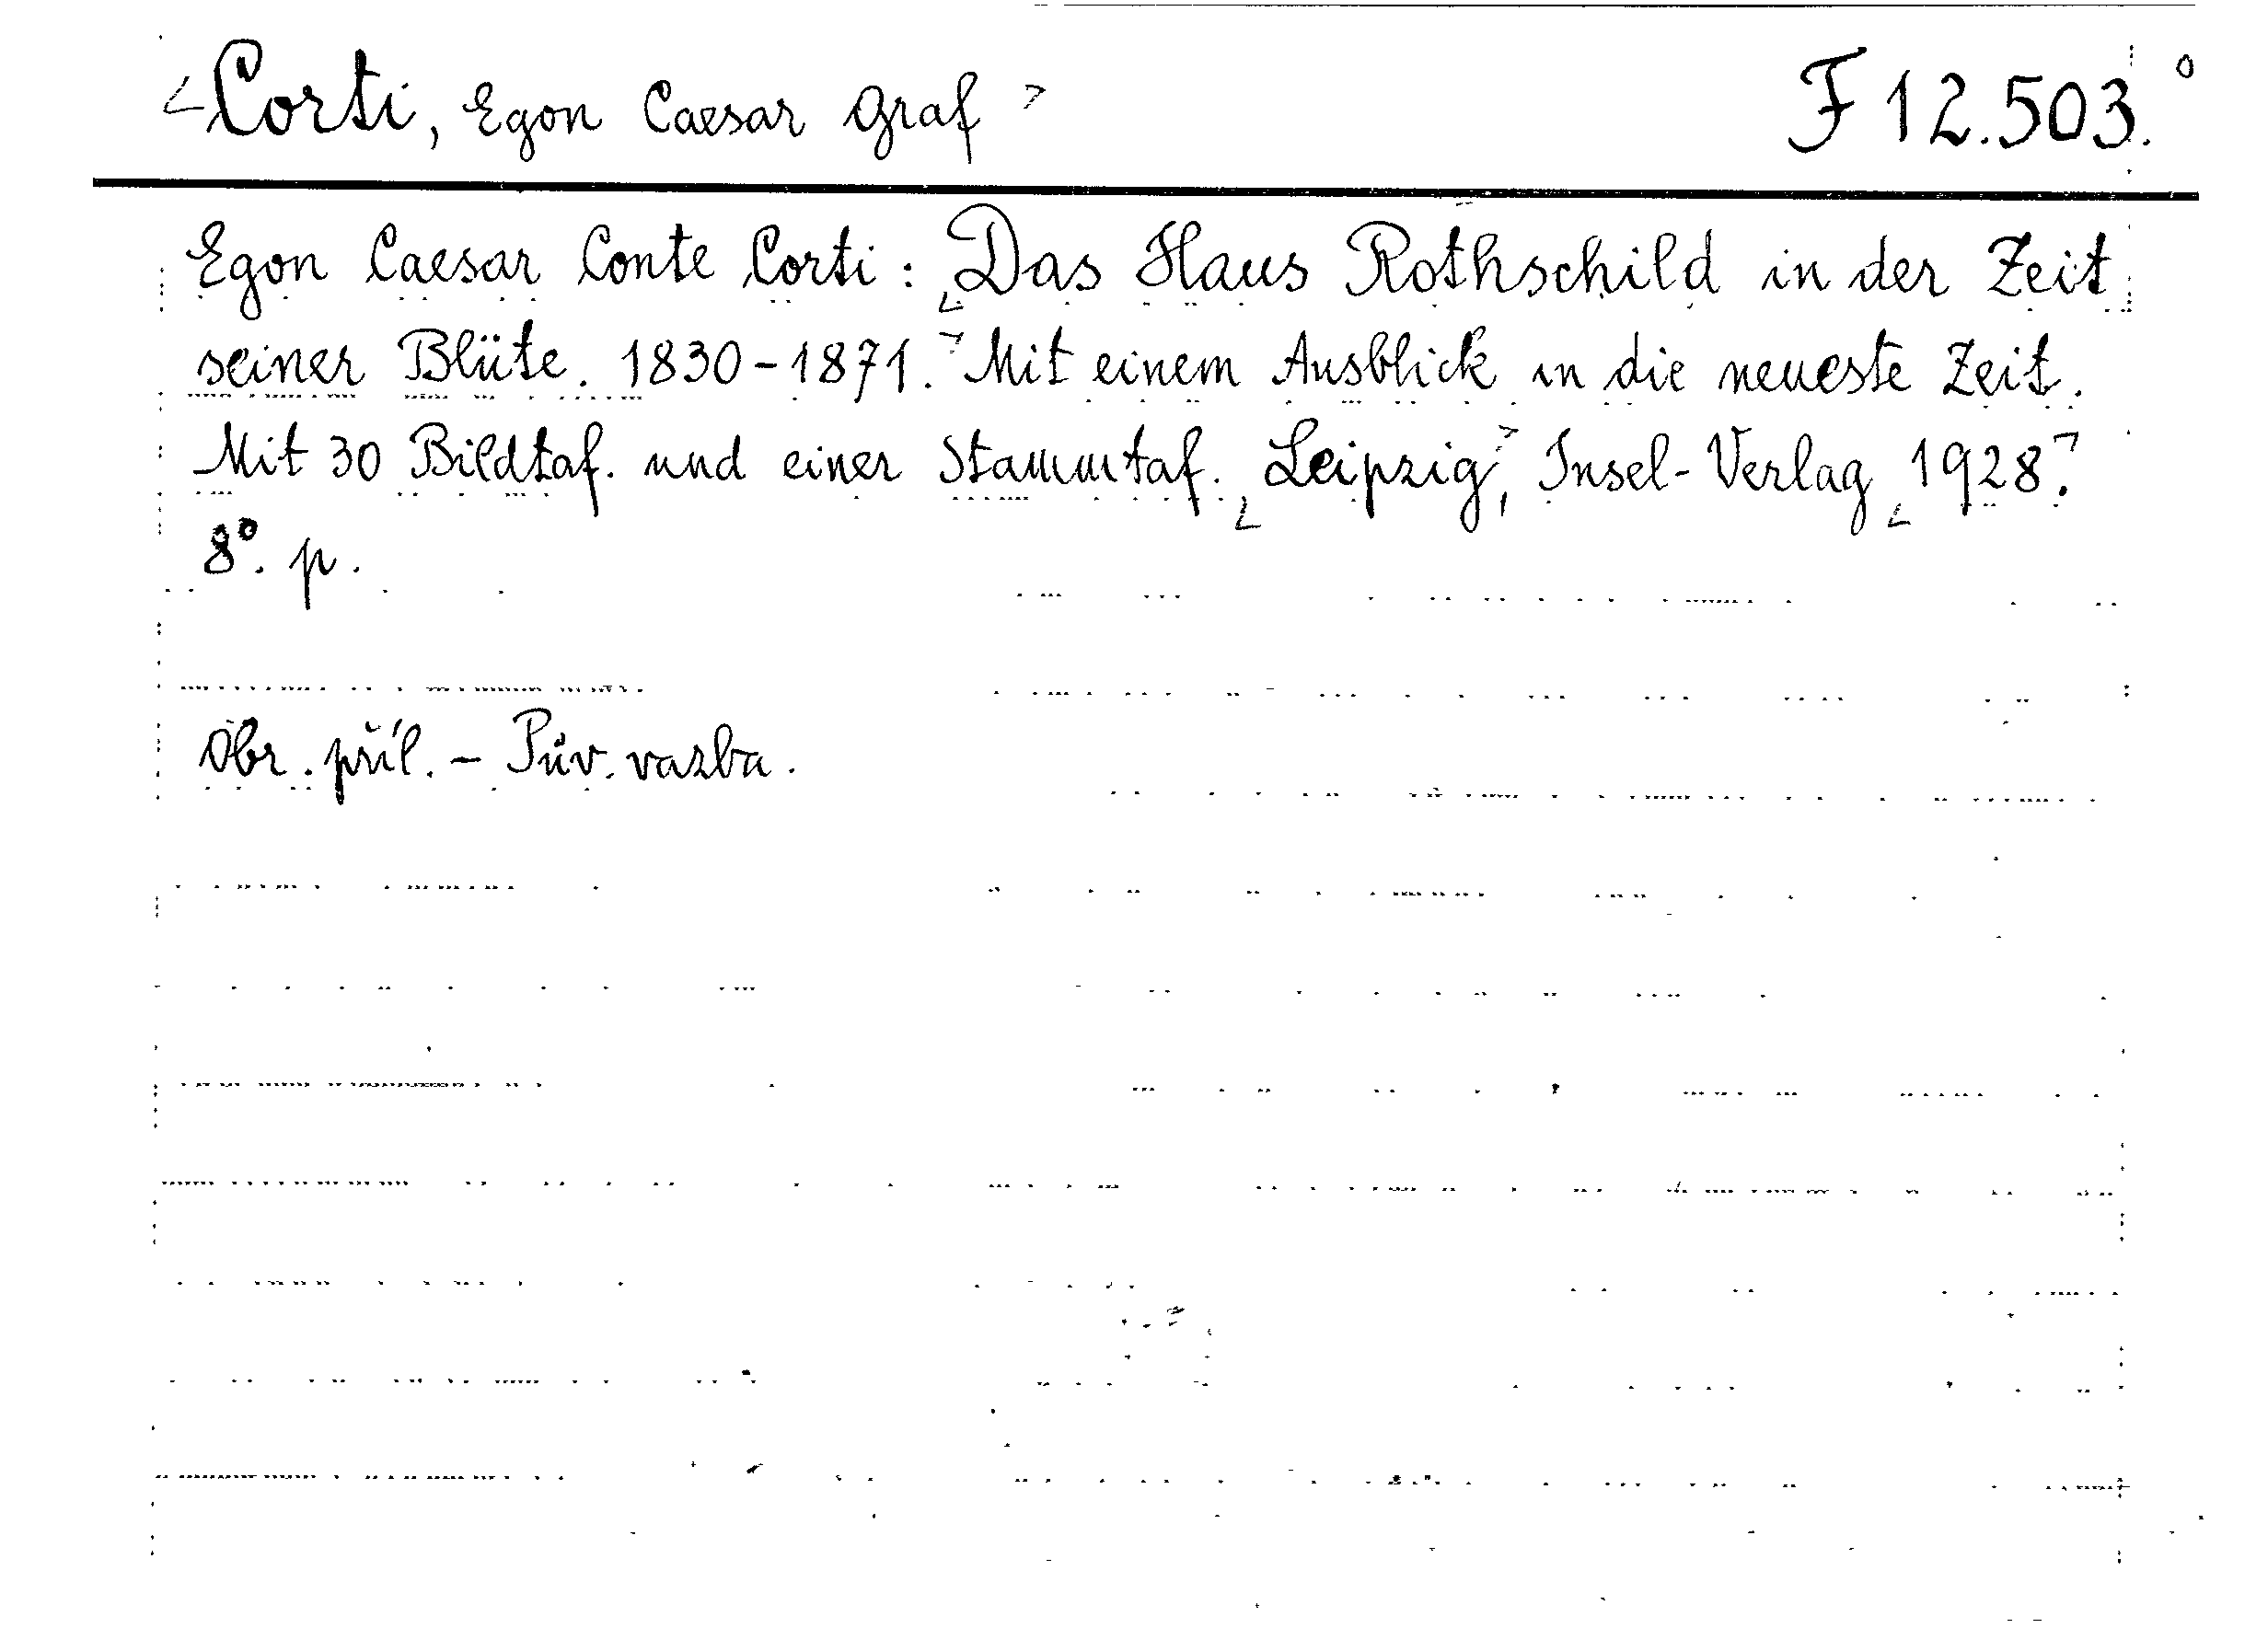 <Corti, Egon Caesar Graf> F 12.503.°
Egon Caesar Conte Corti: <Das Haus Rothschild in der Zeit
seiner Blüte. 1830-1871.> Mit einem Ausblick in die neueste Zeit.
Mit 30 Bildtaf. und einer Stammtaf. <Leipzig>, Insel-Verlag <1928>.
8°. p.
Obr. příl. - Pův. vazba.